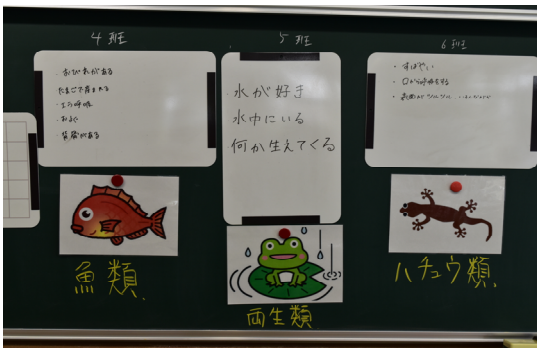 4班
・おびれがある
たまごで産まれる
・エラ呼吸
・およぐ
・背骨がある
魚類
5班
・水が好き
水中にいる
・何か生えてくる
両生類
6班
・すばやい
・口から呼吸をする
ハチュウ類